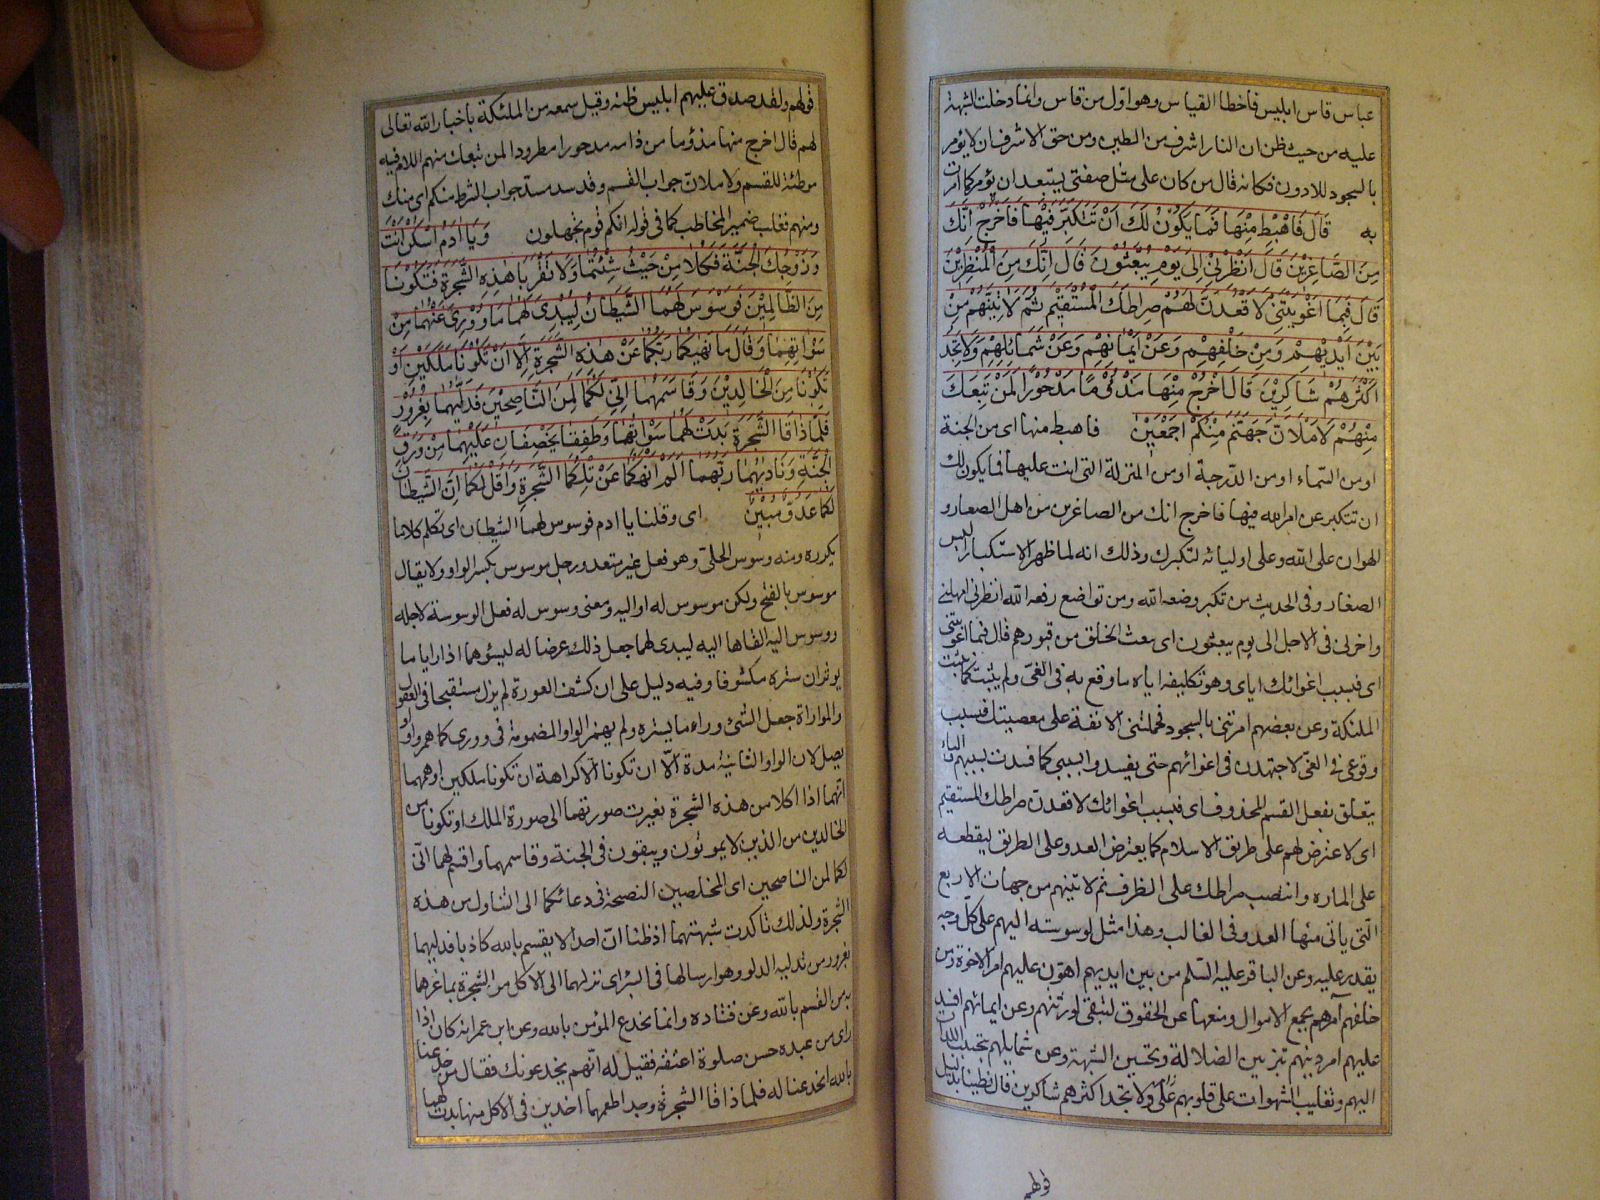 عباس قاس ابليس فاخطا القياس وهو اول من قاس وانما دخلت الشبهة
عليه من حيث ظن ان النار اشرف من الطين ومن حق الاشرف ان لا يؤمر
بالسجود للادون فكانه قال من كان على مثل صفتى يستبعد ان يؤمر كما امرت
به قَالَ فَاهْبِطْ مِنْهَا فَمَا يَكُوْنُ لَكَ اَنْ تَتَكَبَّرَ فِيْهَا فَاخْرُجْ اِنَّكَ
مِنَ الصَّاغِرِيْنَ قَالَ اَنْظِرْنِىْ اِلٰى يَوْمِ يُبْعَثُوْنَ قَالَ اِنَّكَ مِنَ الْمُنْظَرِيْنَ
قَالَ فَبِمَا اَغْوَيْتَنِىْ لَاَقْعُدَنَّ لَهُمْ صِرَاطَكَ الْمُسْتَقِيْمَ ثُمَّ لَاٰتِيَنَّهُمْ مِنْ
بَيْنِ اَيْدِيْهِمْ وَمِنْ خَلْفِهِمْ وَعَنْ اَيْمَانِهِمْ وَعَنْ شَمَائِلِهِمْ وَلَا تَجِدُ
اَكْثَرَهُمْ شَاكِرِيْنَ قَالَ اخْرُجْ مِنْهَا مَذْؤُمًا مَدْحُوْرًا لَمَنْ تَبِعَكَ
مِنْهُمْ لَاَمْلَاَنَّ جَهَنَّمَ مِنْكُمْ اَجْمَعِيْنَ فاهبط منها اى من الجنة
او من السماء او من الدرجة او من المنزلة التى انت عليها فما يكون لك
ان تتكبر عن امر الله فيها فاخرج انك من الصاغرين من اهل الصغار و
الهوان على الله وعلى اوليائه لتكبرك وذلك انه لما ظهر الاستكبار البس
الصغار وفى الحديث من تكبر وضعه الله ومن تواضع رفعه الله انظرنى امهلنى
واخرنى فى الاجل الى يوم يبعثون اى يبعث الخلق من قبورهم قال فبما اغويتنى
اى فبسبب اغوائك اياى وهو تكليفه اياه ما وقع به فى الغى ولم يثبت كما ثبتت
الملئكة وعن بعضهم امرتنى بالسجود فحملتنى الانفة على معصيتك فبسبب
وقوعى فى الغى لاجتهدن فى اغوائهم حتى يفسدوا بسببى كما فسدت بسببهم والباء
يتعلق بفعل القسم المحذوف اى فبسبب اغوائك لاقعدن صراطك المستقيم
اى لاعترض لهم على طريق الاسلام كما يعترض العدو على الطريق ليقطعه
على المارة وانتصب صراطك على الظرف ثم لاتينهم من جهات الاربع
التى ياتى منها العدو فى الغالب وهذا مثل لوسوسته اليهم على كل وجه
يقدر عليه وعن الباقر عليه السلم من بين ايديهم اهون عليهم امر الاخرة ومن
خلفهم آمرهم بجمع الاموال ومنعها عن الحقوق لتبقى لورثتهم وعن ايمانهم افسد
عليهم امر دينهم بتزيين الضلالة وتحسين الشبهة وعن شمايلهم بتحبيب اللذات
اليهم وتغليب الشهوات على قلوبهم ولا تجد اكثرهم شاكرين قال تظنينا بدليل
قولهم
قولهم ولقد صدق عليهم ابليس ظنه وقيل سمعه من الملئكة باخبار الله تعالى
لهم قال اخرج منها مذؤما من ذامه مدحورا مطرودا لمن تبعك منهم اللام فيه
موطئة للقسم ولاملان جواب القسم وقد سد مسد جواب الشرط منكم اى منك
ومنهم فغلب ضمير المخاطب كما فى قوله انكم قوم تجهلون وَيَا اٰدَمُ اسْكُنْ اَنْتَ
وَزَوْجُكَ الْجَنَّةَ فَكُلَا مِنْ حَيْثُ شِئْتُمَا وَلَا تَقْرَبَا هٰذِهِ الشَّجَرَةَ فَتَكُوْنَا
مِنَ الظَّالِمِيْنَ فَوَسْوَسَ لَهُمَا الشَّيْطَانُ لِيُبْدِىَ لَهُمَا مَا وُوْرِىَ عَنْهُمَا مِنْ
سَوْاٰتِهِمَا وَقَالَ مَا نَهٰيكُمَا رَبُّكُمَا عَنْ هٰذِهِ الشَّجَرَةِ اِلَّا اَنْ تَكُوْنَا مَلَكَيْنِ اَوْ
تَكُوْنَا مِنَ الْخَالِدِيْنَ وَقَاسَمَهُمَا اِنِّىْ لَكُمَا لَمِنَ النَّاصِحِيْنَ فَدَلّٰيهُمَا بِغُرُوْرٍ
فَلَمَّا ذَاقَا الشَّجَرَةَ بَدَتْ لَهُمَا سَوْاٰتُهُمَا وَطَفِقَا يَخْصِفَانِ عَلَيْهِمَا مِنْ وَرَقِ
الْجَنَّةِ وَنَادٰيهُمَا رَبُّهُمَا اَلَمْ اَنْهَكُمَا عَنْ تِلْكُمَا الشَّجَرَةِ وَاَقُلْ لَكُمَا اِنَّ الشَّيْطَانَ
لَكُمَا عَدُوٌّ مُبِيْنٌ اى وقلنا يا ادم فوسوس لهما الشيطان اى تكلم كلاما
يكرره ومنه وسوس الحلى وهو فعل غير متعد ورجل موسوس بكسر الواو ولا يقال
موسوس بالفتح ولكن موسوس له او اليه ومعنى وسوس له فعل الوسوسة لاجله
ووسوس اليه القاها اليه ليبدى لهما جعل ذلك غرضا له ليسؤهما اذا رايا ما
يوثران ستره مكشوفا وفيه دليل على ان كشف العورة لم يزل مستقبحا فى العقول
والمواراة جعل الشئ وراء ما يستره ولم يهمز الواو المضمومة فى وورى كما همز واو
يصل لان الواو الثانية مدة الا ان تكونا الا كراهة ان تكونا ملكين اوهمهما
انهما اذا اكلا من هذه الشجرة تغيرت صورتهما الى صورة الملك او تكونا من
الخالدين من الذين لا يموتون ويبقون فى الجنة وقاسمهما واقسم لهما انى
لكما لمن الناصحين اى المخلصين النصيحة فى دعائكما الى التناول من هذه
الشجرة ولذلك تاكدت شبهتهما اذ ظنا ان احدا لا يقسم بالله كاذبا فدليهما
بغرور من تدلية الدلو وهو ارسالها فى البئر اى نزلهما الى الاكل من الشجرة بما غرهما
به من القسم بالله وعن قتاده وانما يخدع المؤمن بالله وعن ابن عمر انه كان اذا
راى من عبده حسن صلوة اعتقه فقيل له انهم يخدعونك فقال من خدعنا
بالله انخدعنا له فلما ذاقا الشجرة وجدا طعمهما اخذين فى الاكل منها بدت لهما